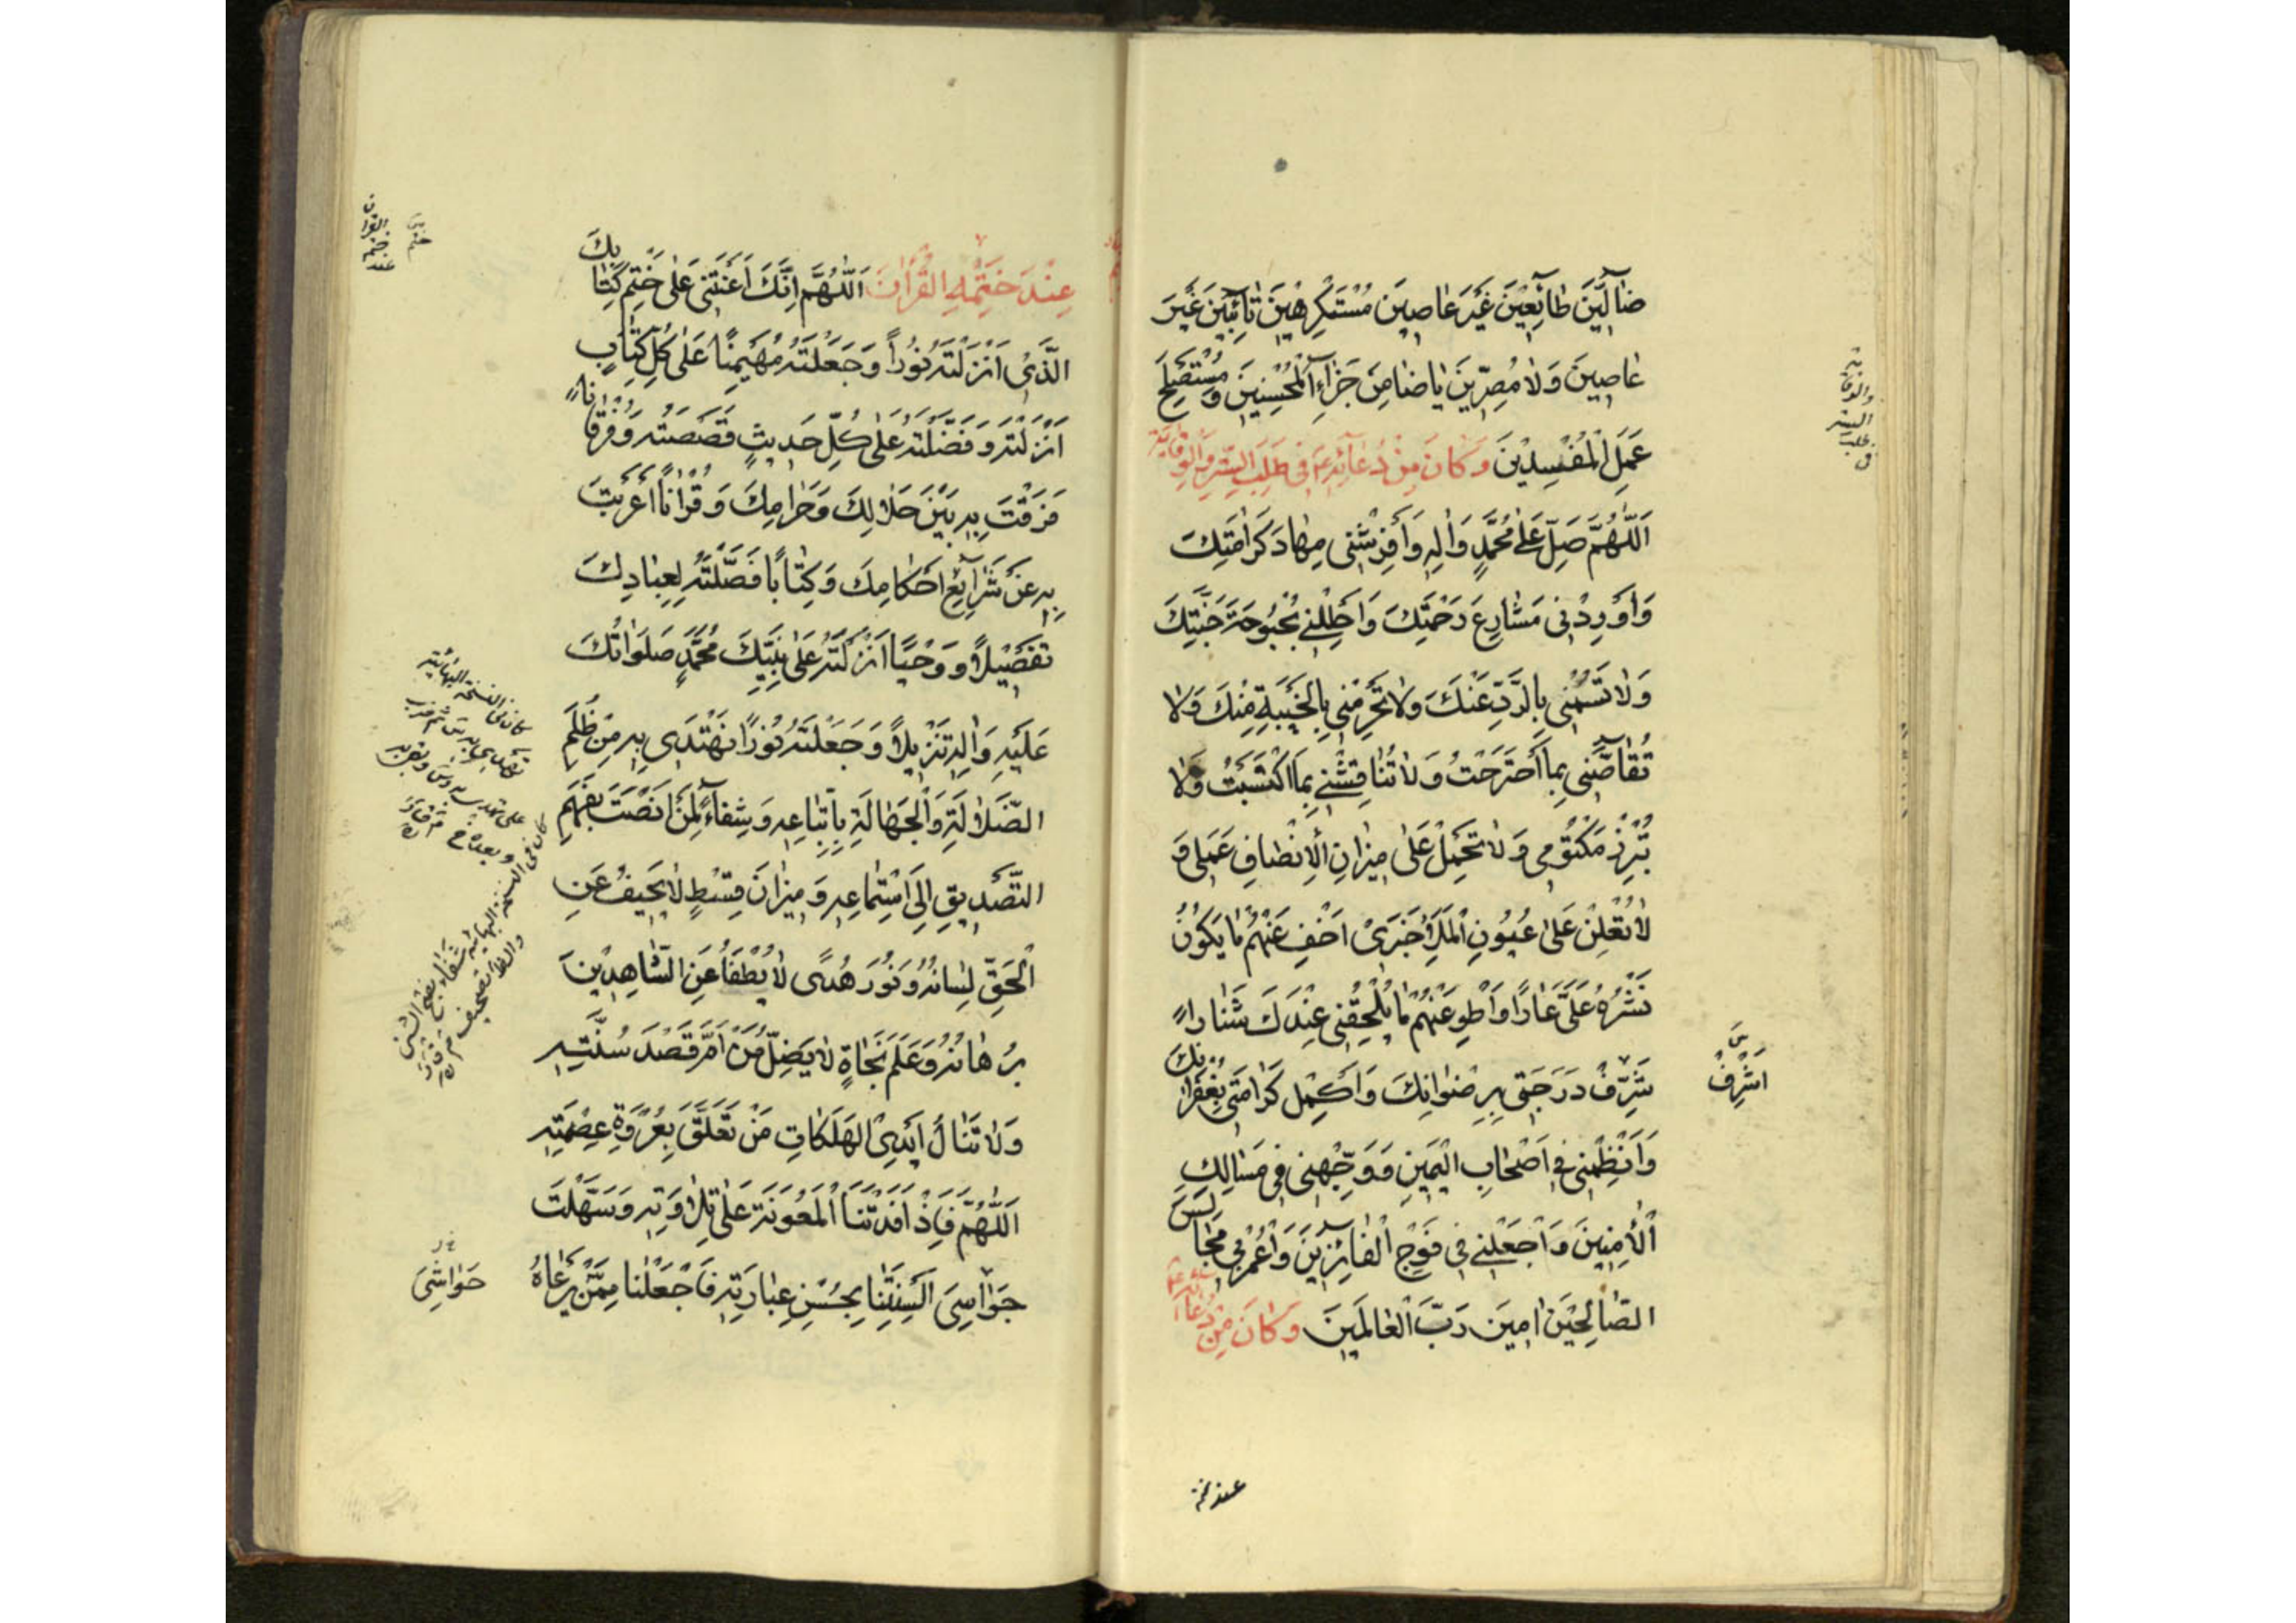 ضَالِّينَ طَائِعِينَ غَيْرَ عَاصِينَ مُسْتَكْرِهِينَ تَائِبِينَ غَيْرَ
عَاصِينَ وَلَا مُصِرِّينَ يَا ضَامِنَ جَزَاءِ الْمُحْسِنِينَ وَمُسْتَصْلِحَ
عَمَلِ الْمُفْسِدِينَ وَكَانَ مِنْ دُعَائِهِ ع فِي طَلَبِ السِّتْرِ وَالْوِقَايَةِ
اَللّٰهُمَّ صَلِّ عَلَى مُحَمَّدٍ وَاٰلِهِ وَأَفْرِشْنِي مِهَادَ كَرَامَتِكَ
وَأَوْرِدْنِي مَشَارِعَ رَحْمَتِكَ وَاَحْلِلْنِي بُحْبُوحَةَ جَنَّتِكَ
وَلَا تَسُمْنِي بِالرَّدِّ عَنْكَ وَلَا تَحْرِمْنِي بِالْخَيْبَةِ مِنْكَ وَلَا
تُقَاصَّنِي بِمَا اجْتَرَحْتُ وَلَا تُنَاقِشْنِي بِمَا اكْتَسَبْتُ وَلَا
تُبْرِزْ مَكْتُومِي وَلَا تَحْمِلْ عَلَى مِيزَانِ الْاِنْصَافِ عَمَلِي وَ
لَا تُعْلِنْ عَلَى عُيُونِ الْمَلَأِ خَبَرِي اَخْفِ عَنْهُمْ مَا يَكُونُ
نَشْرُهُ عَلَيَّ عَارًا وَاَطْوِ عَنْهُمْ مَا يُلْحِقُنِي عِنْدَكَ شَنَارًا
شَرِّفْ دَرَجَتِي بِرِضْوَانِكَ وَاَكْمِلْ كَرَامَتِي بِغُفْرَانِكَ
وَانْظِمْنِي فِي اَصْحَابِ الْيَمِينِ وَوَجِّهْنِي فِي مَسَالِكِ
الْاٰمِنِينَ وَاجْعَلْنِي فِي فَوْجِ الْفَائِزِينَ وَاعْمُرْ بِي مَجَالِسَ
الصَّالِحِينَ اٰمِينَ رَبَّ الْعَالَمِينَ وَكَانَ مِنْ دُعَائِهِ ع
اَشْرِفْ
عند ختمه
عِنْدَ خَتْمِهِ الْقُرْاٰنَ اَللّٰهُمَّ اِنَّكَ اَعَنْتَنِي عَلَى خَتْمِ كِتَابِكَ
الَّذِي اَنْزَلْتَهُ نُورًا وَجَعَلْتَهُ مُهَيْمِنًا عَلَى كُلِّ كِتَابٍ
اَنْزَلْتَهُ وَفَضَّلْتَهُ عَلَى كُلِّ حَدِيثٍ قَصَصْتَهُ وَفُرْقَانًا
فَرَقْتَ بِهِ بَيْنَ حَلَالِكَ وَحَرَامِكَ وَقُرْاٰنًا اَعْرَبْتَ
بِهِ عَنْ شَرَائِعِ اَحْكَامِكَ وَكِتَابًا فَصَّلْتَهُ لِعِبَادِكَ
تَفْصِيلًا وَوَحْيًا اَنْزَلْتَهُ عَلَى نَبِيِّكَ مُحَمَّدٍ صَلَوَاتُكَ
عَلَيْهِ وَاٰلِهِ تَنْزِيلًا وَجَعَلْتَهُ نُورًا نَهْتَدِي بِهِ مِنْ ظُلَمِ
الضَّلَالَةِ وَالْجَهَالَةِ بِاتِّبَاعِهِ وَشِفَاءً لِمَنْ اَنْصَتَ بِفَهْمِ
التَّصْدِيقِ اِلَى اسْتِمَاعِهِ وَمِيزَانَ قِسْطٍ لَا يَحِيفُ عَنِ
الْحَقِّ لِسَانُهُ وَنُورَ هُدًى لَا يُطْفَأُ عَنِ الشَّاهِدِينَ
بُرْهَانُهُ وَعَلَمَ نَجَاةٍ لَا يَضِلُّ مَنْ اَمَّ قَصْدَ سُنَّتِهِ
وَلَا تَنَالُ اَيْدِي الْهَلَكَاتِ مَنْ تَعَلَّقَ بِعُرْوَةِ عِصْمَتِهِ
اَللّٰهُمَّ فَاِذْ اَفَدْتَنَا الْمَعُونَةَ عَلَى تِلَاوَتِهِ وَسَهَّلْتَ
جَوَاسِيَ اَلْسِنَتِنَا بِحُسْنِ عِبَارَتِهِ فَاجْعَلْنَا مِمَّنْ يَرْعَاهُ
حَوَاشِيَ